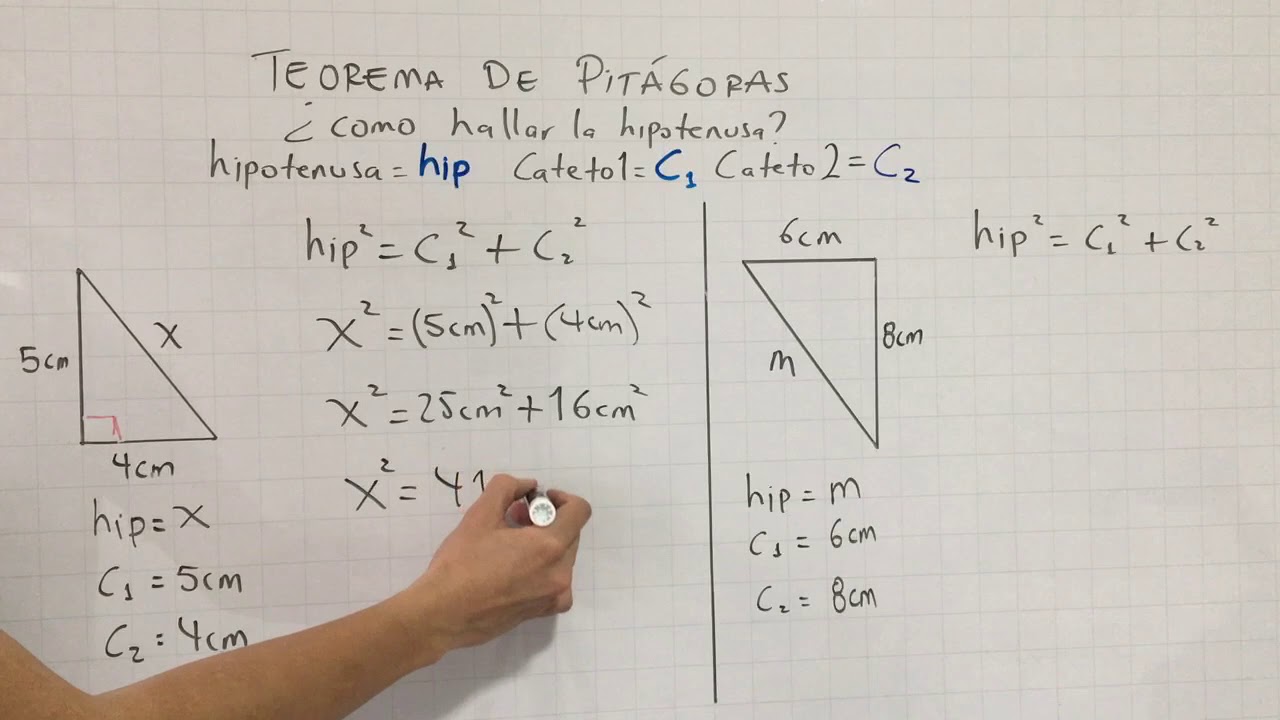 TEOREMA DE PITÁGORAS
¿como hallar la hipotenusa?
hipotenusa = hip Cateto1 = C₁ Cateto2 = C₂
hip² = C₁² + C₂²
x² = (5cm)² + (4cm)²
x² = 25cm² + 16cm²
x² = 41
5cm
x
4cm
hip = x
C₁ = 5cm
C₂ = 4cm
6cm
8cm
m
hip² = C₁² + C₂²
hip = m
C₁ = 6cm
C₂ = 8cm